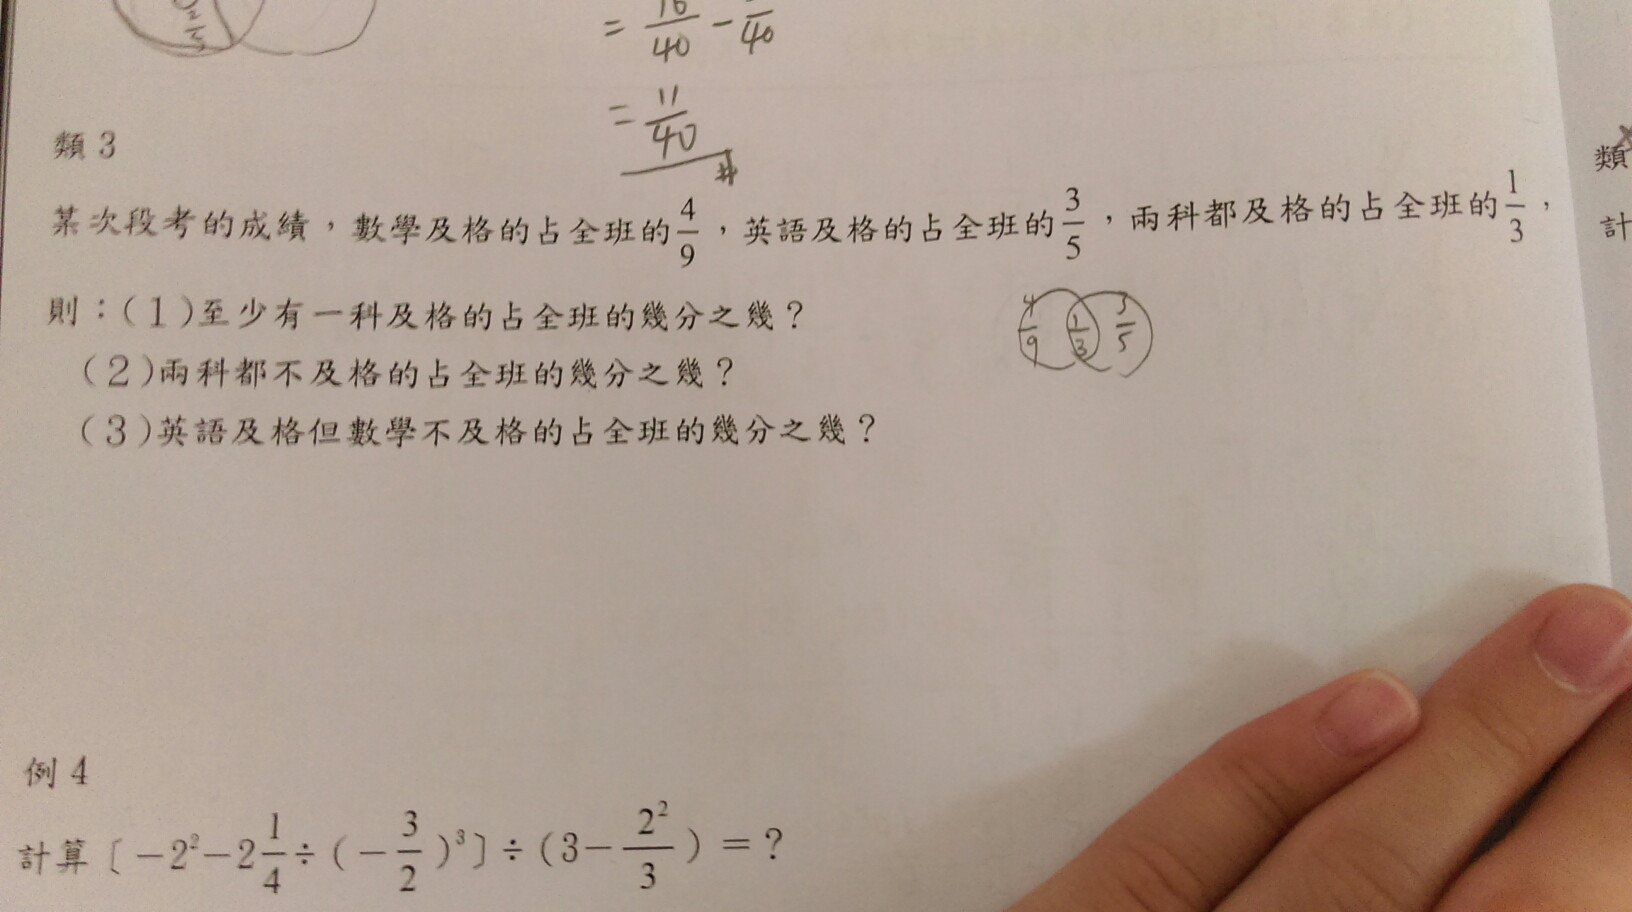 2/5
= 16/40 - /40
= 11/40 #
類 3
類
某次段考的成績，數學及格的占全班的4/9，英語及格的占全班的3/5，兩科都及格的占全班的1/3，
計
則：(1)至少有一科及格的占全班的幾分之幾？
4/9 1/3 3/5
(2)兩科都不及格的占全班的幾分之幾？
(3)英語及格但數學不及格的占全班的幾分之幾？
例 4
計算〔-2²-2 1/4÷(-3/2)³〕÷(3-2²/3) = ?